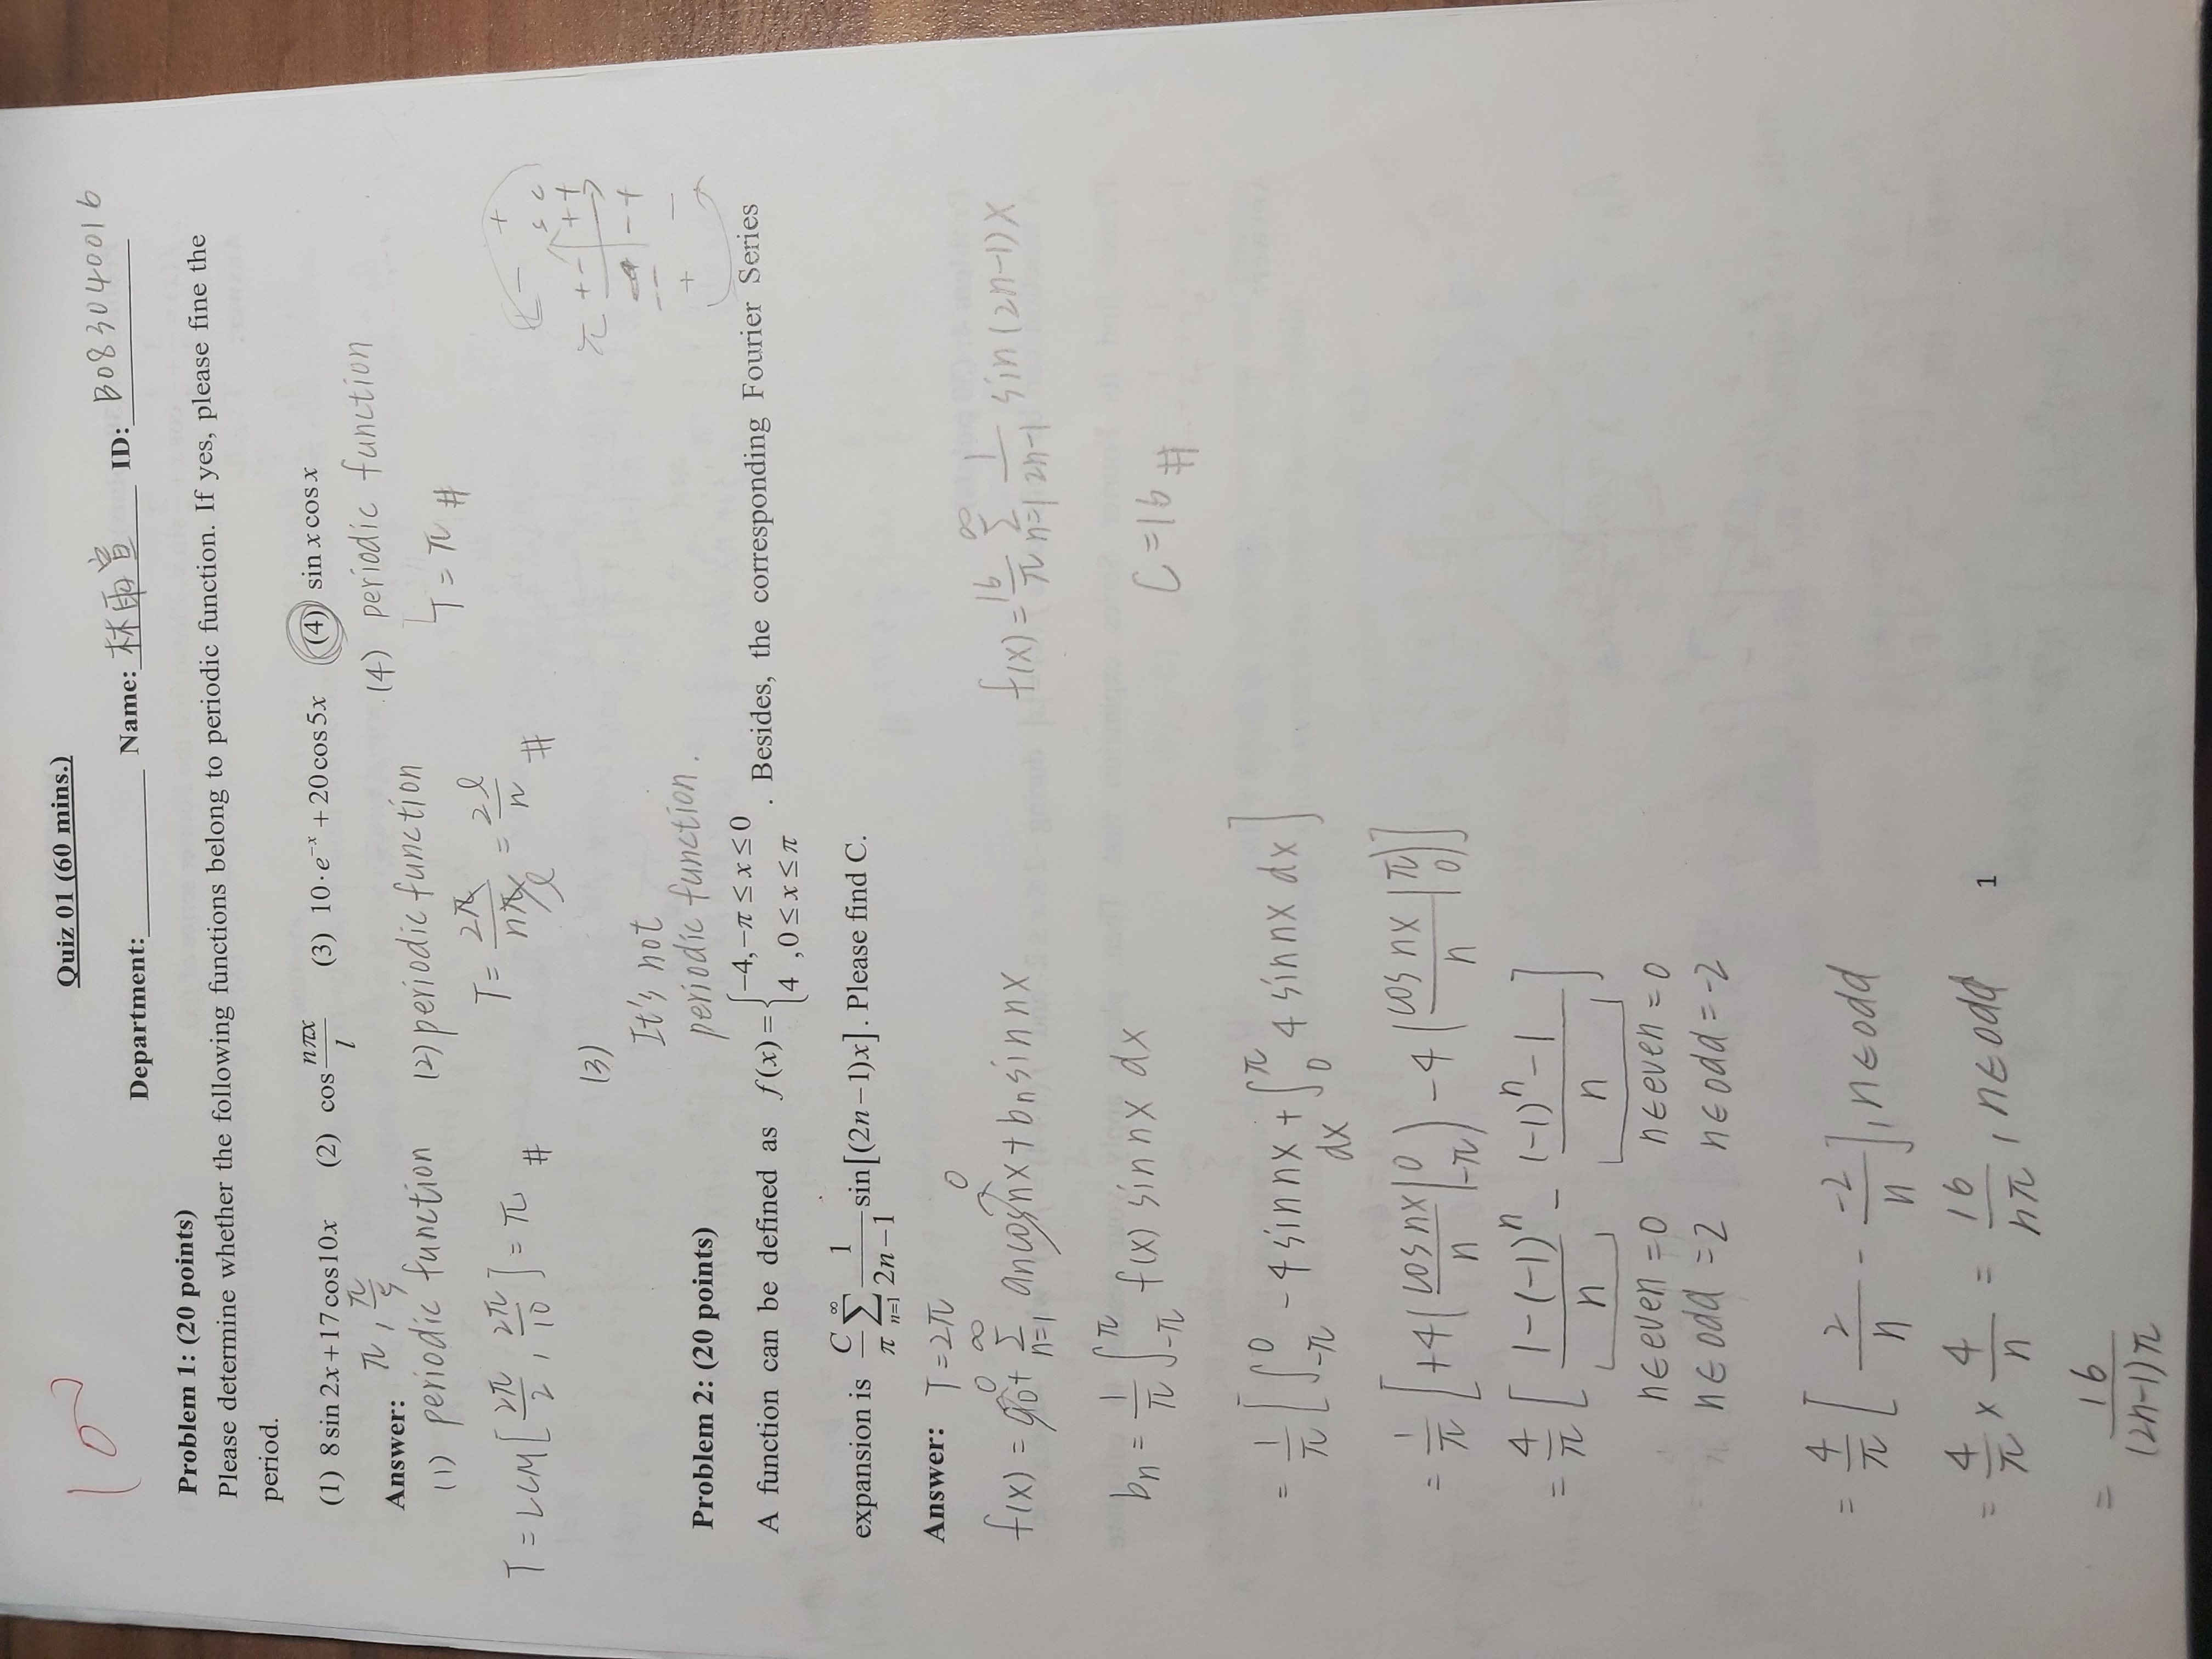 100
Quiz 01 (60 mins.)
Department:__________ Name: 林雨宣 ID: B083040016
Problem 1: (20 points)
Please determine whether the following functions belong to periodic function. If yes, please fine the
period.
(1) 8 sin 2x + 17 cos 10x (2) cos nπx/l (3) 10·e^(-x) + 20 cos 5x (4) sin x cos x
π, π/5
Answer:
(1) periodic function (2) periodic function (4) periodic function
T = π #
T = LCM[2π/2, 2π/10] = π # T = 2π/(nπ/l) = 2l/n #
− +
s c
π + − + +
− +
− −
+ −
(3)
It's not
periodic function.
Problem 2: (20 points)
A function can be defined as f(x) = { −4, −π ≤ x ≤ 0
4 , 0 ≤ x ≤ π . Besides, the corresponding Fourier Series
expansion is C/π ∑_{n=1}^{∞} 1/(2n−1) sin[(2n−1)x]. Please find C.
Answer: T = 2π
0 0
f(x) = a0 + ∑_{n=1}^{∞} an cos nx + bn sin nx
f(x) = 16/π ∑_{n=1}^{∞} 1/(2n−1) sin(2n−1)x
bn = 1/π ∫_{−π}^{π} f(x) sin nx dx
C = 16 #
= 1/π [ ∫_{−π}^{0} −4 sin nx dx + ∫_{0}^{π} 4 sin nx dx ]
= 1/π [ +4( cos nx/n |_{−π}^{0} ) −4( cos nx/n |_{0}^{π} ) ]
= 4/π [ (1−(−1)^n)/n − ((−1)^n−1)/n ]
n∈even = 0 n∈even = 0
n∈odd = 2 n∈odd = −2
= 4/π [ 2/n − −2/n ], n∈odd
= 4/π × 4/n = 16/nπ, n∈odd
1
= 16/(2n−1)π